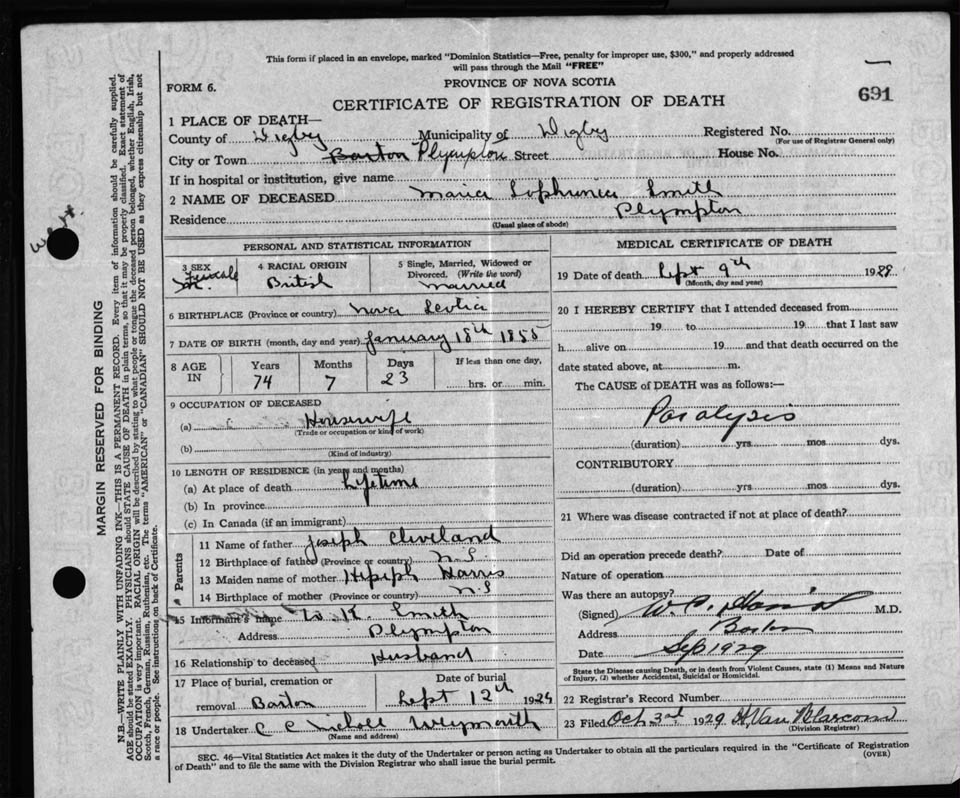 This form if placed in an envelope, marked "Dominion Statistics—Free, penalty for improper use, $300," and properly addressed
will pass through the Mail "FREE"
FORM 6.
PROVINCE OF NOVA SCOTIA
CERTIFICATE OF REGISTRATION OF DEATH
691
1 PLACE OF DEATH—
County of Digby Municipality of Digby Registered No.
(For use of Registrar General only)
City or Town Barton Plympton Street House No.
If in hospital or institution, give name
2 NAME OF DECEASED Maria Sophronia Smith
Residence Plympton
(Usual place of abode)
PERSONAL AND STATISTICAL INFORMATION
3 SEX Female
4 RACIAL ORIGIN British
5 Single, Married, Widowed or Divorced. (Write the word) Married
6 BIRTHPLACE (Province or country) Nova Scotia
7 DATE OF BIRTH (month, day and year) January 18th 1855
8 AGE IN Years 74 Months 7 Days 23 If less than one day, hrs. or min.
9 OCCUPATION OF DECEASED
(a) Housewife
(Trade or occupation or kind of work)
(b)
(Kind of industry)
10 LENGTH OF RESIDENCE (in years and months)
(a) At place of death Lifetime
(b) In province
(c) In Canada (if an immigrant)
Parents
11 Name of father Joseph Cleveland
12 Birthplace of father (Province or country) N.S
13 Maiden name of mother Harris
14 Birthplace of mother (Province or country) N.S
15 Informant's name Smith
Address Plympton
16 Relationship to deceased Husband
17 Place of burial, cremation or removal Barton
Date of burial Sept 12th 1929
18 Undertaker C C Nichols Weymouth
(Name and address)
MEDICAL CERTIFICATE OF DEATH
19 Date of death Sept 9th 1929
(Month, day and year)
20 I HEREBY CERTIFY that I attended deceased from
19 to 19 that I last saw
h alive on 19 and that death occurred on the
date stated above, at m.
The CAUSE of DEATH was as follows:—
Paralysis
(duration) yrs. mos. dys.
CONTRIBUTORY
(duration) yrs. mos. dys.
21 Where was disease contracted if not at place of death?
Did an operation precede death? Date of
Nature of operation
Was there an autopsy?
(Signed) M.D.
Address Barton
Date Sep 1929
State the Disease causing Death, or in death from Violent Causes, state (1) Means and Nature
of Injury, (2) whether Accidental, Suicidal or Homicidal.
22 Registrar's Record Number
23 Filed Oct 3rd 1929
(Division Registrar)
SEC. 46—Vital Statistics Act makes it the duty of the Undertaker or person acting as Undertaker to obtain all the particulars required in the "Certificate of Registration
of Death" and to file the same with the Division Registrar who shall issue the burial permit.
(OVER)
MARGIN RESERVED FOR BINDING
N.B.—WRITE PLAINLY WITH UNFADING INK—THIS IS A PERMANENT RECORD. Every item of information should be carefully supplied.
AGE should be stated EXACTLY. PHYSICIANS should STATE CAUSE OF DEATH in plain terms, so that it may be properly classified. Exact statement of
OCCUPATION is very important. RACIAL ORIGIN will be described by stating to what people or tongue the deceased person belonged, whether English, Irish,
Scotch, French, German, Russian, Ruthenian, etc. The terms "AMERICAN" or "CANADIAN" SHOULD NOT BE USED as they express citizenship but not
a race or people. See instructions on back of Certificate.